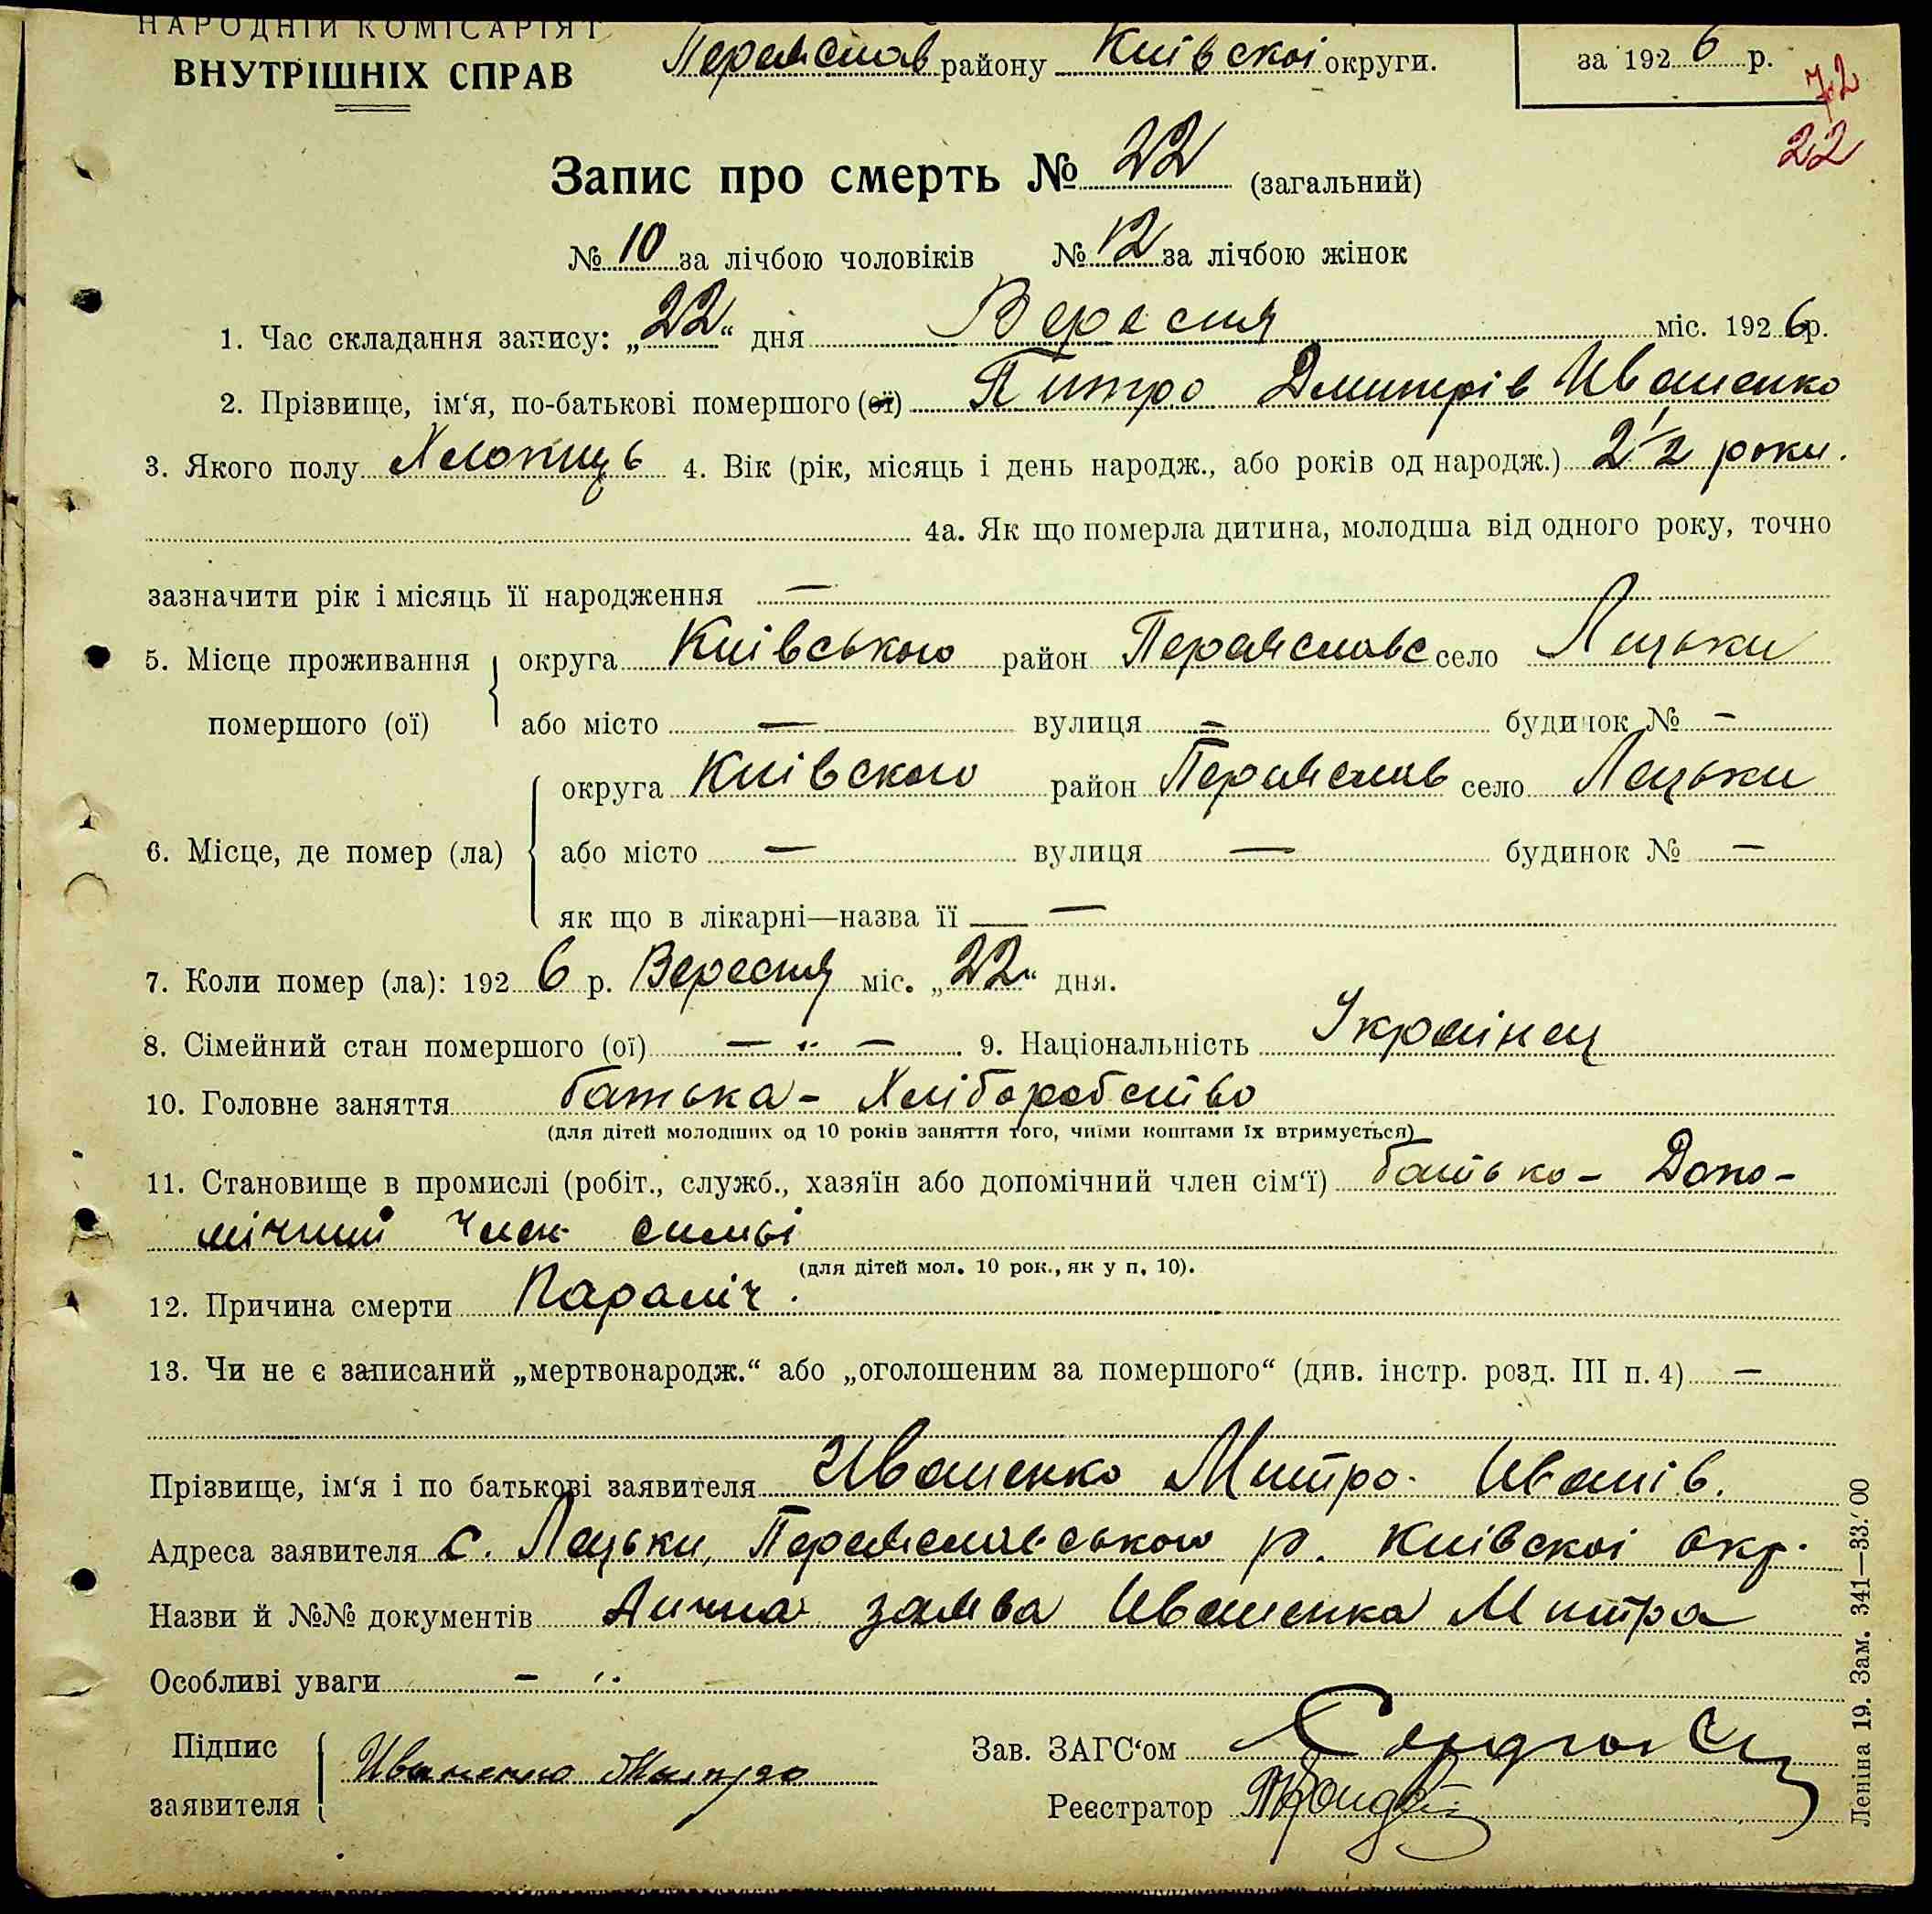 НАРОДНІЙ КОМІСАРІЯТ
ВНУТРІШНІХ СПРАВ
Переяслав району Київскої округи.
за 1926 р.
72
22
Запис про смерть № 22 (загальний)
№ 10 за лічбою чоловіків № 12 за лічбою жінок
1. Час складання запису: „22“ дня Вересня міс. 1926 р.
2. Прізвище, ім‘я, по-батькові помершого (ої) Питро Дмитрів Иваненко
3. Якого полу Хлопиць 4. Вік (рік, місяць і день народж., або років од народж.) 2 1/2 роки.
4а. Як що померла дитина, молодша від одного року, точно
зазначити рік і місяць її народження —
5. Місце проживання округа Київського район Переяславс село Лецьки
помершого (ої) або місто — вулиця — будинок № —
округа Київского район Переяслав село Лецьки
6. Місце, де помер (ла) або місто — вулиця — будинок № —
як що в лікарні—назва її —
7. Коли помер (ла): 1926 р. Вересня міс. „22“ дня.
8. Сімейний стан помершого (ої) — „ — 9. Національність Українец
10. Головне заняття батька - Хліборобство
(для дітей молодших од 10 років заняття того, чиїми коштами їх втримується)
11. Становище в промислі (робіт., служб., хазяїн або допомічний член сім‘ї) батько - Допо-
мічний член симьї
(для дітей мол. 10 рок., як у п. 10).
12. Причина смерти Параліч.
13. Чи не є записаний „мертвонародж.“ або „оголошеним за помершого“ (див. інстр. розд. III п. 4) —
Прізвище, ім‘я і по батькові заявителя Иваненко Митро Иванів.
Адреса заявителя с. Лецьки, Переяславського р. Київскої окр.
Назви й №№ документів Лична заява Иваненка Митра
Особливі уваги - „
Підпис
заявителя Иваненко Митро
Зав. ЗАГС‘ом
Реєстратор
Леніна 19. Зам. 341—33.000